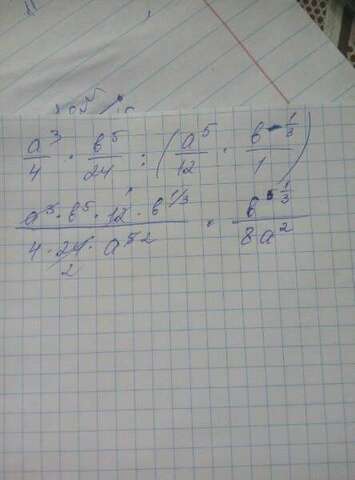 a³/4 · b⁵/24 : (a⁵/12 · b^(-1/3)/1)
a³ · b⁵ · 12 · b^(1/3) / 4 · 24 · a⁵ 2 · b^(5 1/3) / 8a²
2